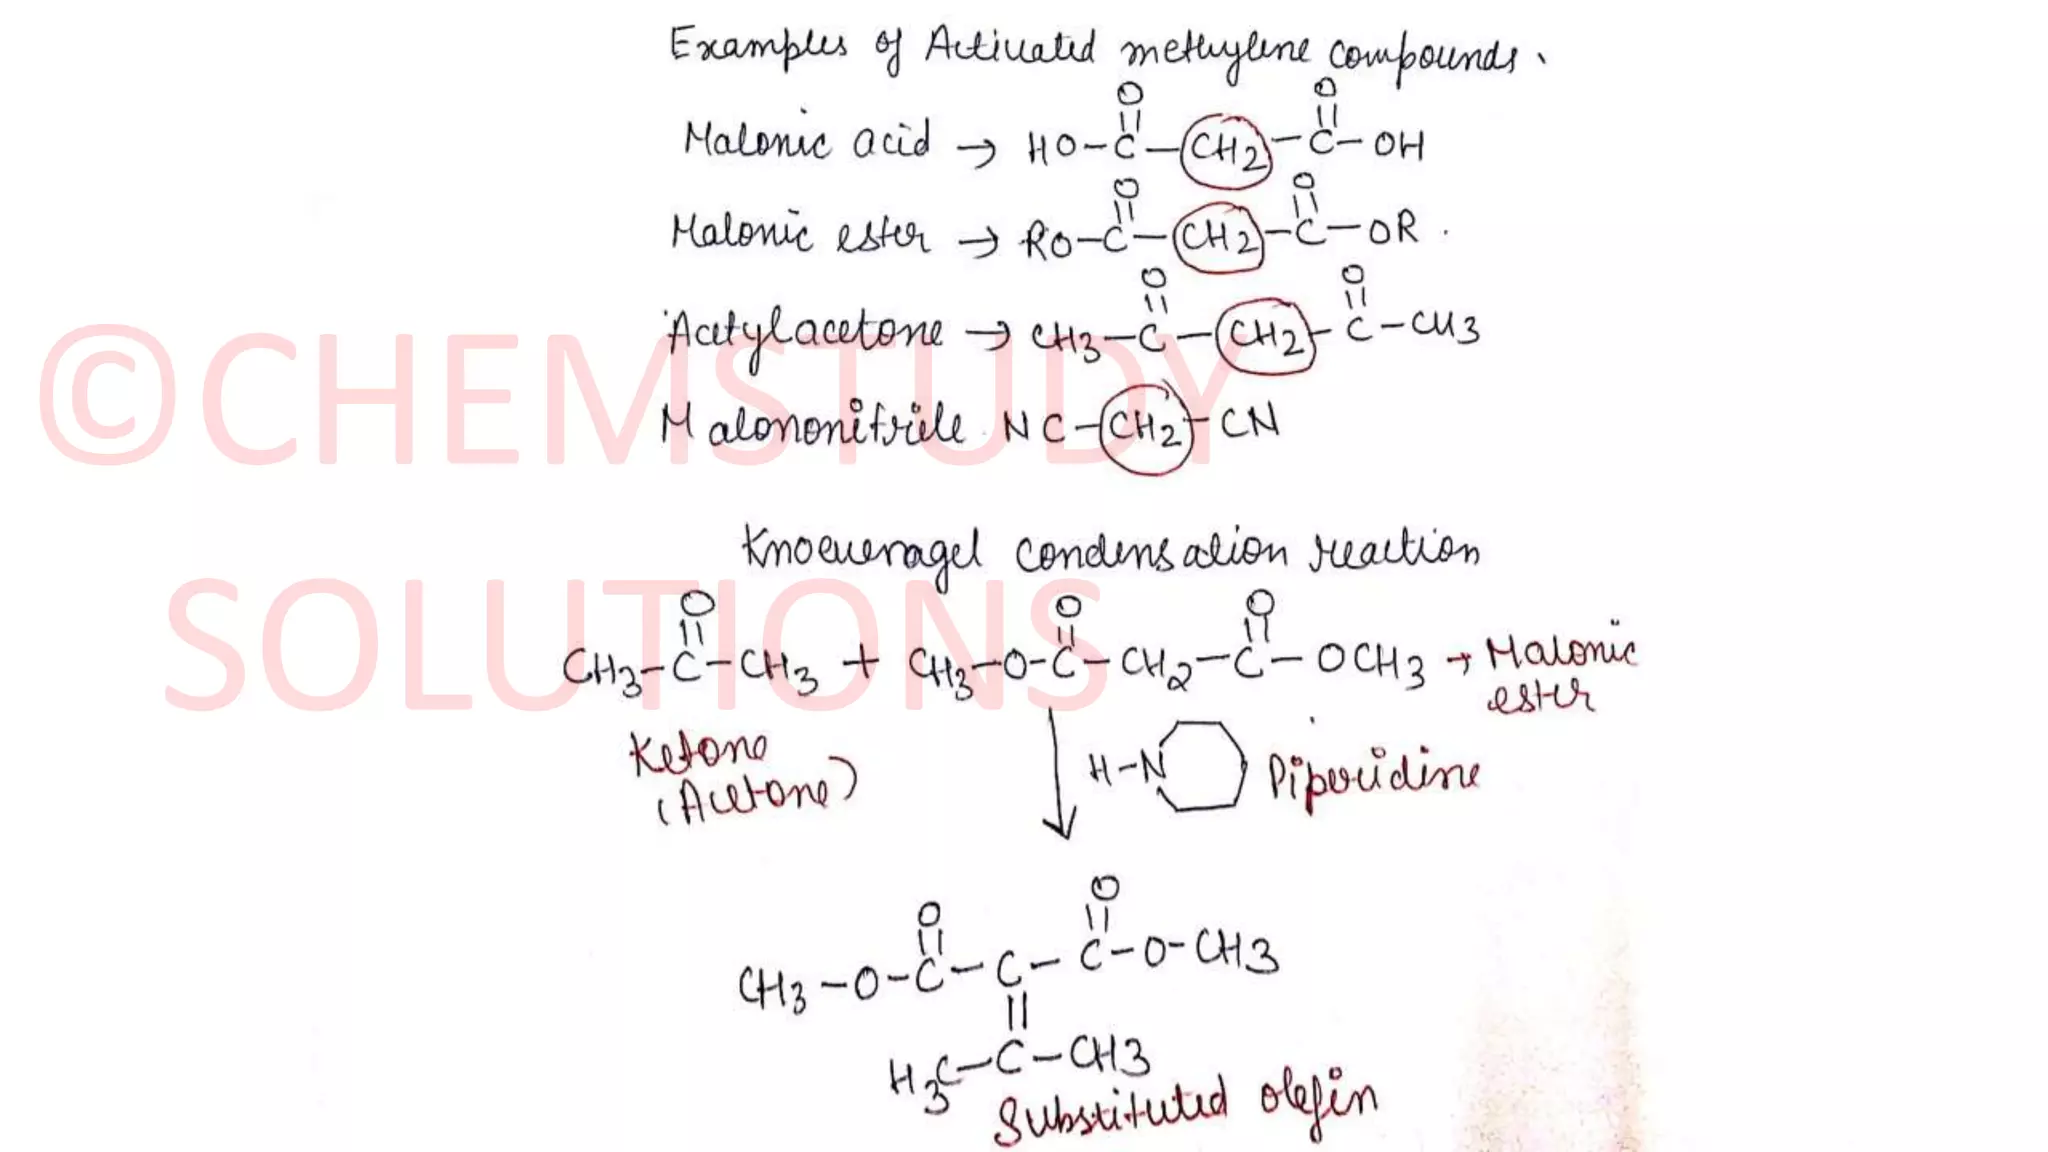 Examples of Activated methylene compounds.
O O
|| ||
Malonic acid → HO-C-CH2-C-OH
O O
|| ||
Malonic ester → RO-C-CH2-C-OR.
O O
|| ||
Acetylacetone → CH3-C-CH2-C-CH3
Malononitrile NC-CH2-CN
©CHEMSTUDY
SOLUTIONS
Knoevenagel condensation reaction
O O O
|| || ||
CH3-C-CH3 + CH3-O-C-CH2-C-OCH3 → Malonic
ester
Ketone
(Acetone)
H-N Piperidine
O O
|| ||
CH3-O-C-C-C-O-CH3
||
H3C-C-CH3
Substituted olefin